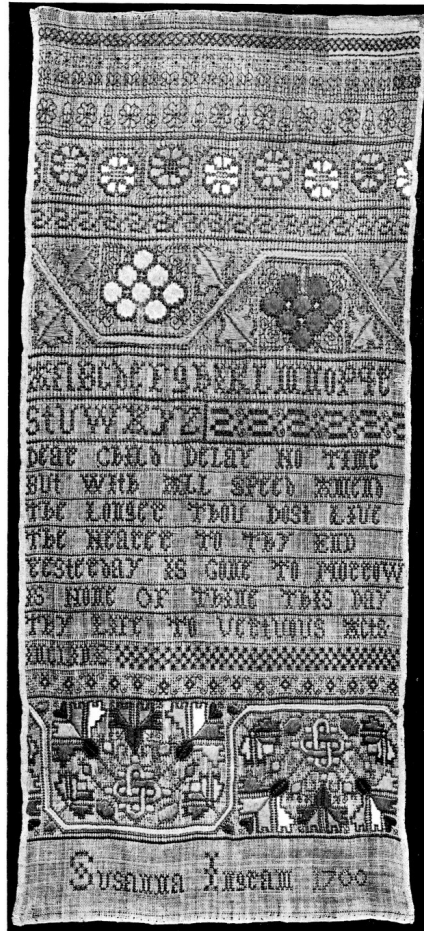 ABCDEFGHIKLMNOPQR
STUWXYZ
DEAR CHILD DELAY NO TIME
BUT WITH ALL SPEED AMEND
THE LONGER THOU DOST LIVE
THE NEARER TO THY END
YESTERDAY IS GONE TO MORROW
IS NONE OF THINE THIS DAY
THY LIFE TO VERTUOUS ACTS
INCLINE
Susanna Ingram 1700